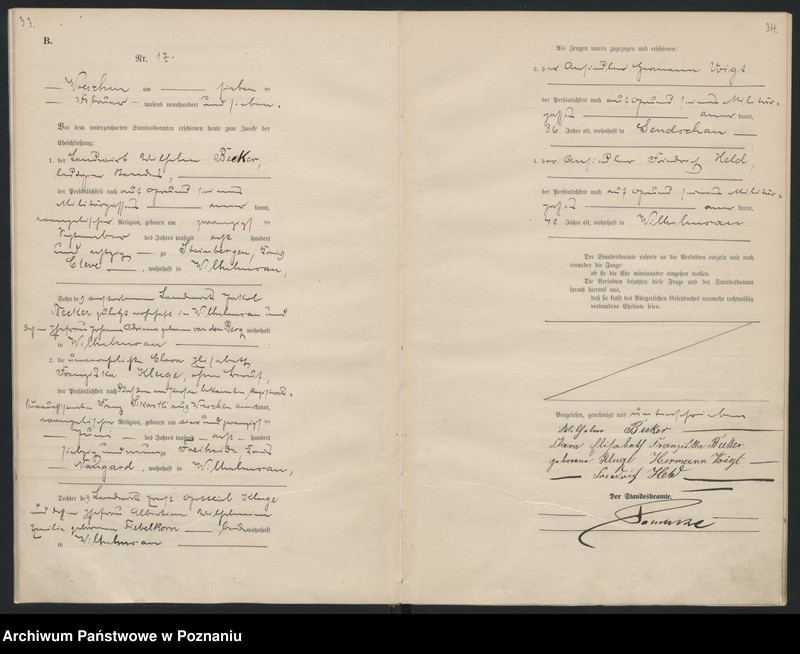 33.
B.
Nr. 17.
Wreschen am sieben ten
Februar tausend neunhundert und sieben.
Vor dem unterzeichneten Standesbeamten erschienen heute zum Zwecke der
Eheschließung:
1. der Landwirt Wilhelm Becker,
der Persönlichkeit nach auf Grund seines
Militärpasses kannt,
evangelischer Religion, geboren am zwanzigsten
September des Jahres tausend acht hundert
und achtzig zu Steinbergen, Kreis
Cleve, wohnhaft in Wilhelmsau,
Sohn des verstorbenen Landwirts Jakob
Becker zuletzt wohnhaft in Wilhelmsau und
dessen Ehefrau Johanna Adriana geborenen van den Berg wohnhaft
in Wilhelmsau
2. die unverehelichte Clara Elisabeth
Franziska Kluge, ohne Beruf,
der Persönlichkeit nach durch den
Franz Sikorski aus Wreschen kannt,
evangelischer Religion, geboren am vier und zwanzigsten
Juni des Jahres tausend acht hundert
siebzig und neun zu Freiheide, Kreis
Naugard, wohnhaft in Wilhelmsau,
Tochter des Landwirts Ernst Gottlieb Kluge
und dessen Ehefrau Albertine Wilhelmine
Emilie geborenen Fiebelkorn beide wohnhaft
in Wilhelmsau
34.
Als Zeugen waren zugezogen und erschienen:
3. der Ansiedler Hermann Voigt
der Persönlichkeit nach auf Grund seines Militär-
passes kannt,
36 Jahre alt, wohnhaft in Sendschau
4. der Ansiedler Friedrich Held,
der Persönlichkeit nach auf Grund seines Militär-
passes kannt,
40 Jahre alt, wohnhaft in Wilhelmsau
Der Standesbeamte richtete an die Verlobten einzeln und nach
einander die Frage:
ob sie die Ehe miteinander eingehen wollen.
Die Verlobten bejahten diese Frage und der Standesbeamte
sprach hierauf aus,
daß sie kraft des Bürgerlichen Gesetzbuches nunmehr rechtmäßig
verbundene Eheleute seien.
Vorgelesen, genehmigt und unterschrieben
Wilhelm Becker
Clara Elisabeth Franziska Becker
geborene Kluge Hermann Voigt
Friedrich Held
Der Standesbeamte.
Archiwum Państwowe w Poznaniu